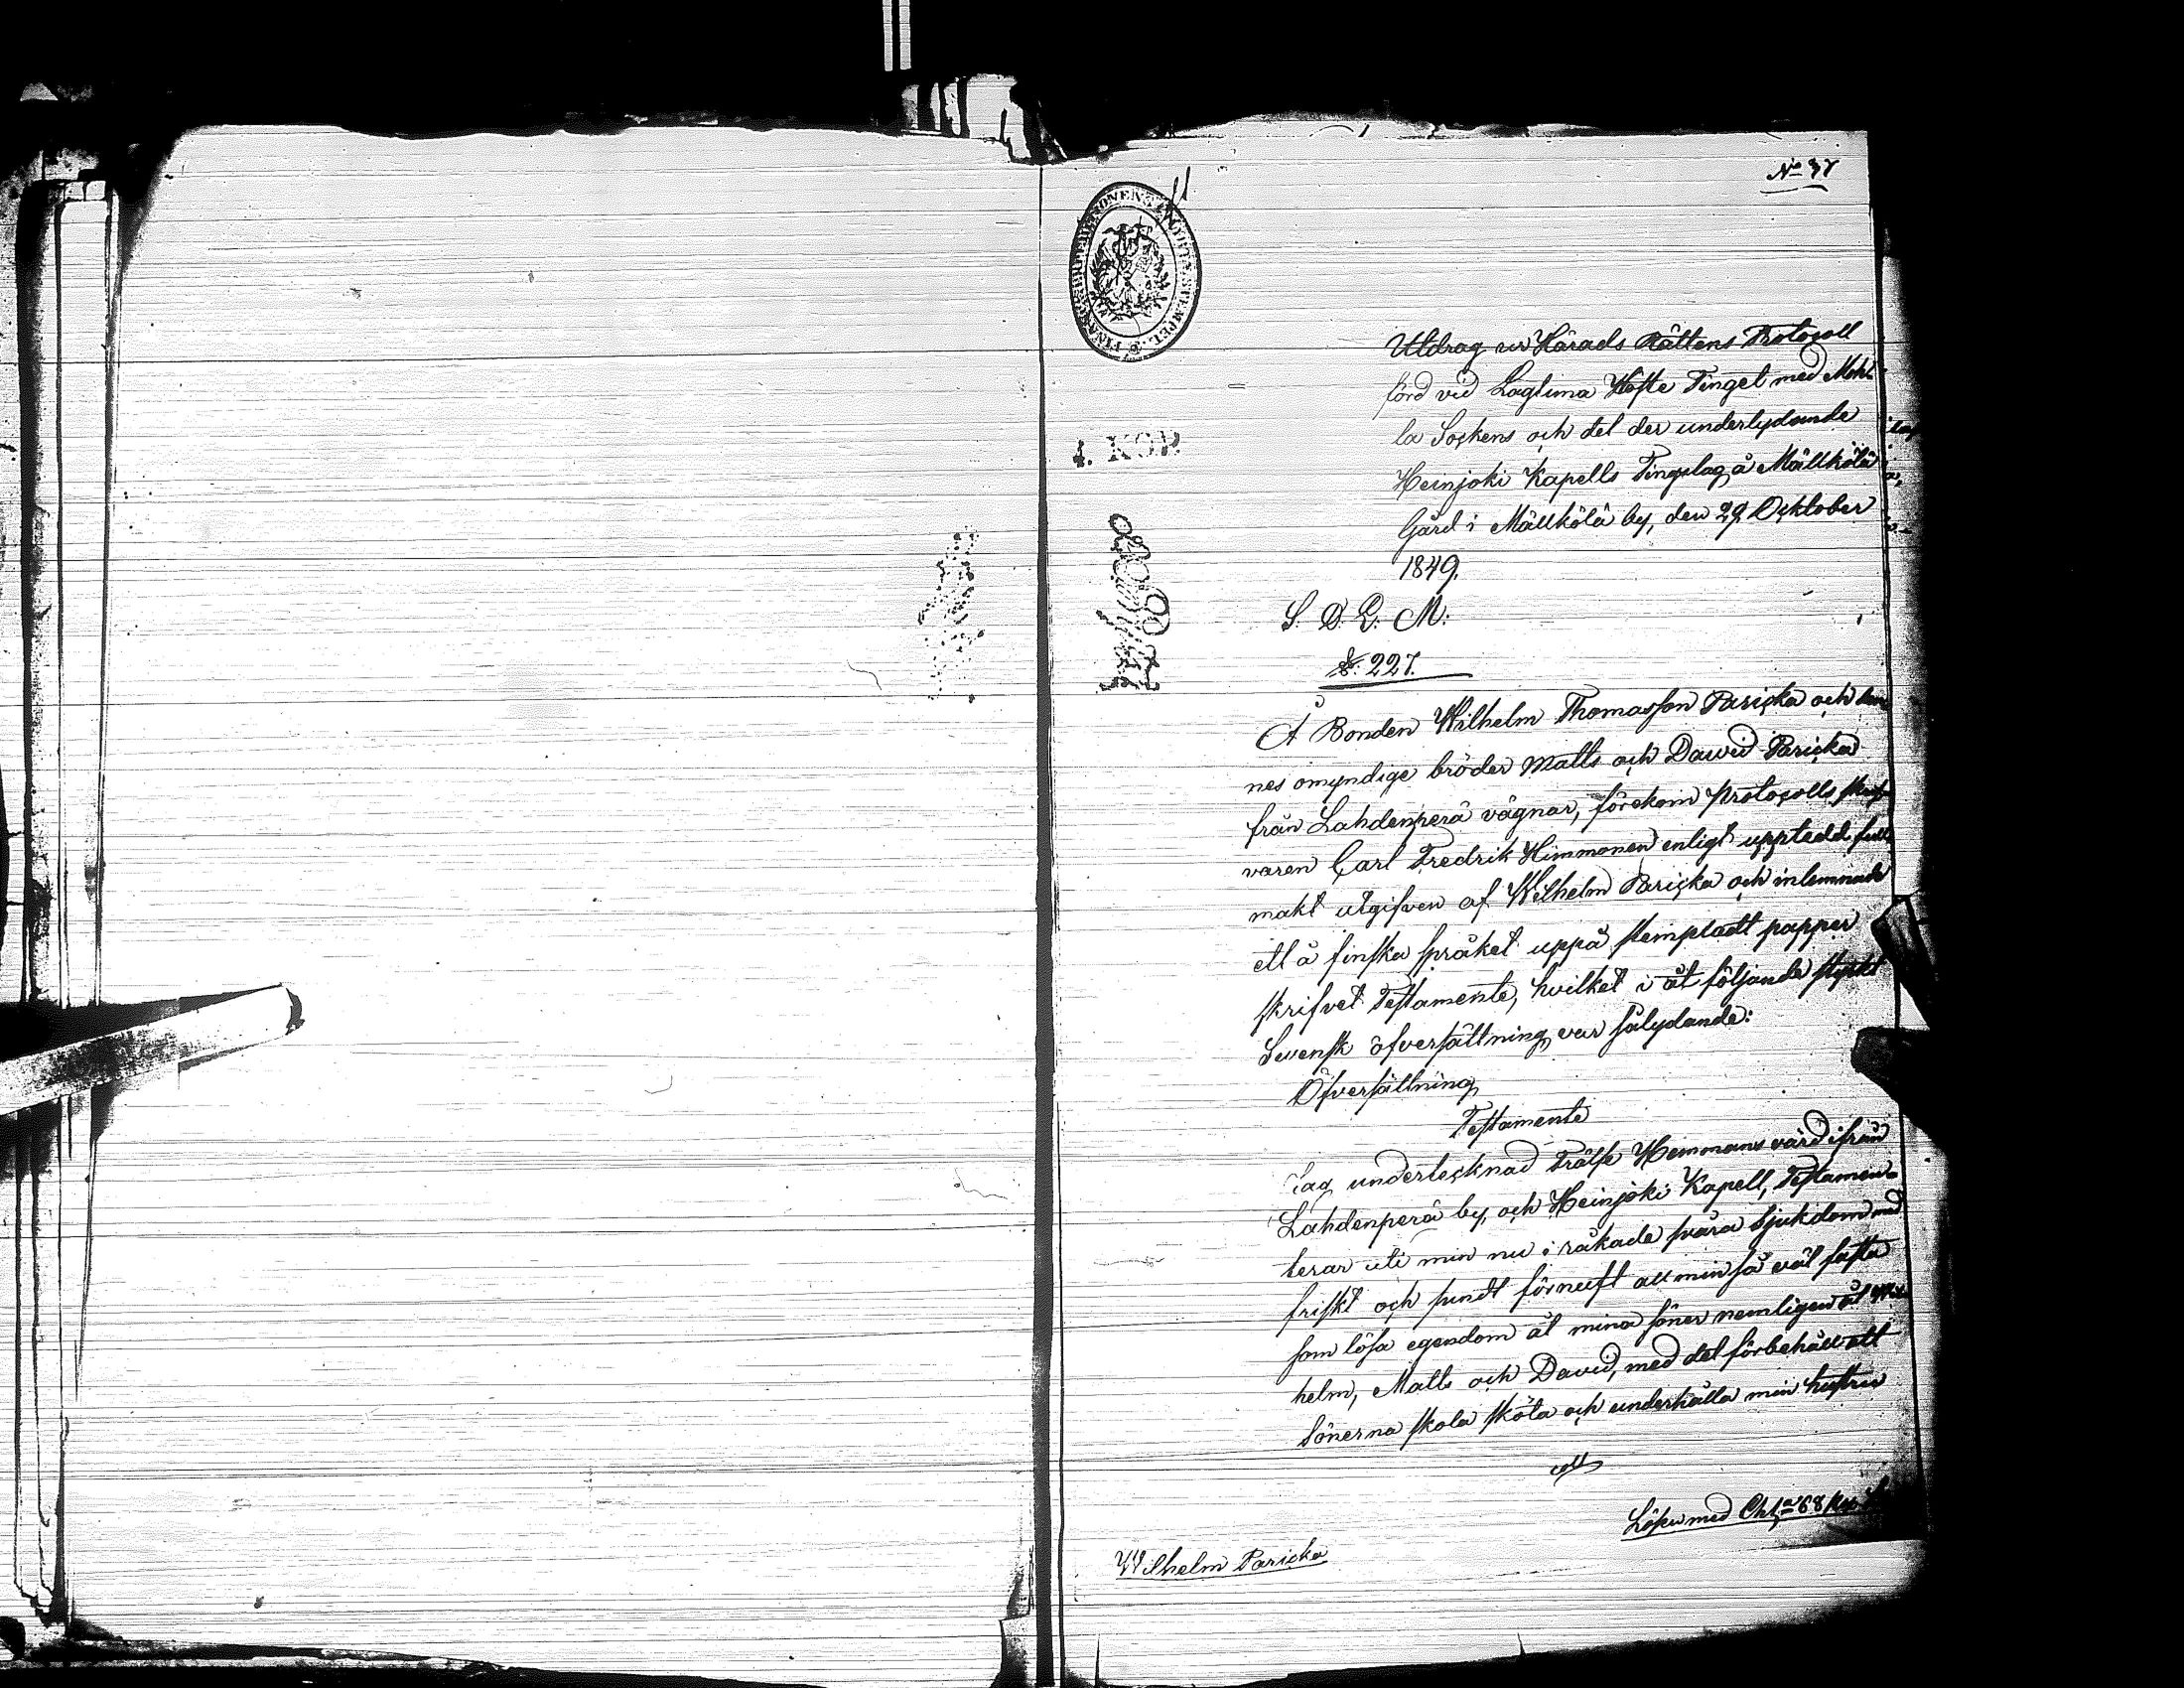 No 37
4. KOP.
Utdrag ur Härads Rättens Protocoll
förd vid Lagtima Höste Tinget med Mohl-
la Sockens och det der underlydande
Heinjoki Kapells Tingslag, å Mällkölä
Gård i Mällkölä by, den 29 Ocktober
1849.
S. D. L. M:
§. 227.
Å Bonden Wilhelm Thomasson Paricka och hen
nes omyndige bröder Matts och Dawid Paricka
från Lahdenperä vägnar, förekom protocolls skrif
varen Carl Fredrik Himmonen enligt upptedd full
makt utgifven af Wilhelm Paricka och inlemnade
ett å finska språket uppå stempladt papper
skrifvet Testamente, hvilket i åt följande styckt
Svensk öfversättning var sålydande:
Öfversättning
Testamente
Jag undertecknad Frälse Hemmans värd ifrån
Lahdenperä by och Heinjoki Kapell, Testamen-
terar uti min nu i råkade svåra sjukdom med
friskt och sundt förnuft all min så väl fasta
som lösa egendom åt mina söner nemligen åt Wil
helm, Matts och David, med det förbehåll att
Sönerna skola sköta och underhålla min hustru
Lösen med Cht. 68 kop. S.
Wilhelm Paricka